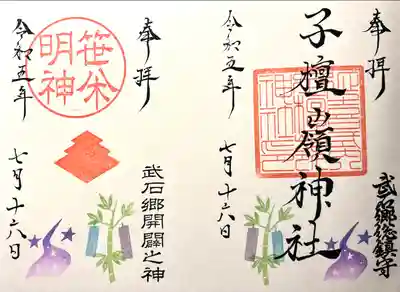 奉拝
武郷総鎮守
子檀嶺神社
令和五年
七月十六日
奉拝
武石郷開闢之神
笹焼
明神
令和五年
七月十六日